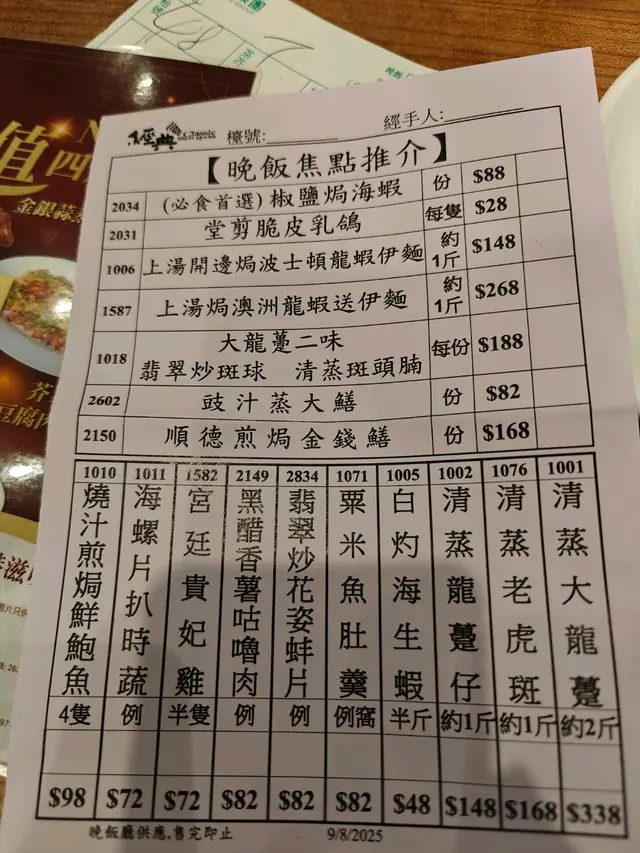 經典 檯號: 經手人:
【晚飯焦點推介】
2034 (必食首選) 椒鹽焗海蝦 份 $88
2031 堂剪脆皮乳鴿 每隻 $28
1006 上湯開邊焗波士頓龍蝦伊麵 約1斤 $148
1587 上湯焗澳洲龍蝦送伊麵 約1斤 $268
1018 大龍躉二味 翡翠炒斑球 清蒸斑頭腩 每份 $188
2602 豉汁蒸大鱔 份 $82
2150 順德煎焗金錢鱔 份 $168
1010 燒汁煎焗鮮鮑魚 4隻 $98
1011 海螺片扒時蔬 例 $72
1582 宮廷貴妃雞 半隻 $72
2149 黑醋香薯咕嚕肉 例 $82
2834 翡翠炒花姿蚌片 例 $82
1071 粟米魚肚羹 例窩 $82
1005 白灼海生蝦 半斤 $48
1002 清蒸龍躉仔 約1斤 $148
1076 清蒸老虎斑 約1斤 $168
1001 清蒸大龍躉 約2斤 $338
晚飯廳供應,售完即止 9/8/2025
值
金銀蒜
豆腐